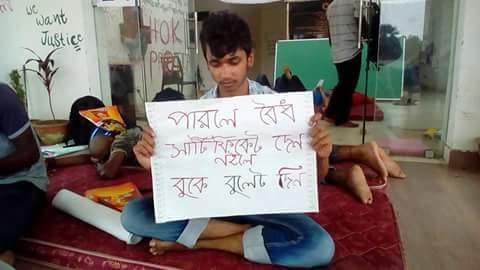 we
want
Justice
HOK
পারলে বৈধ
সার্টিফিকেট দেন
নইলে
বুকে বুলেট দিন